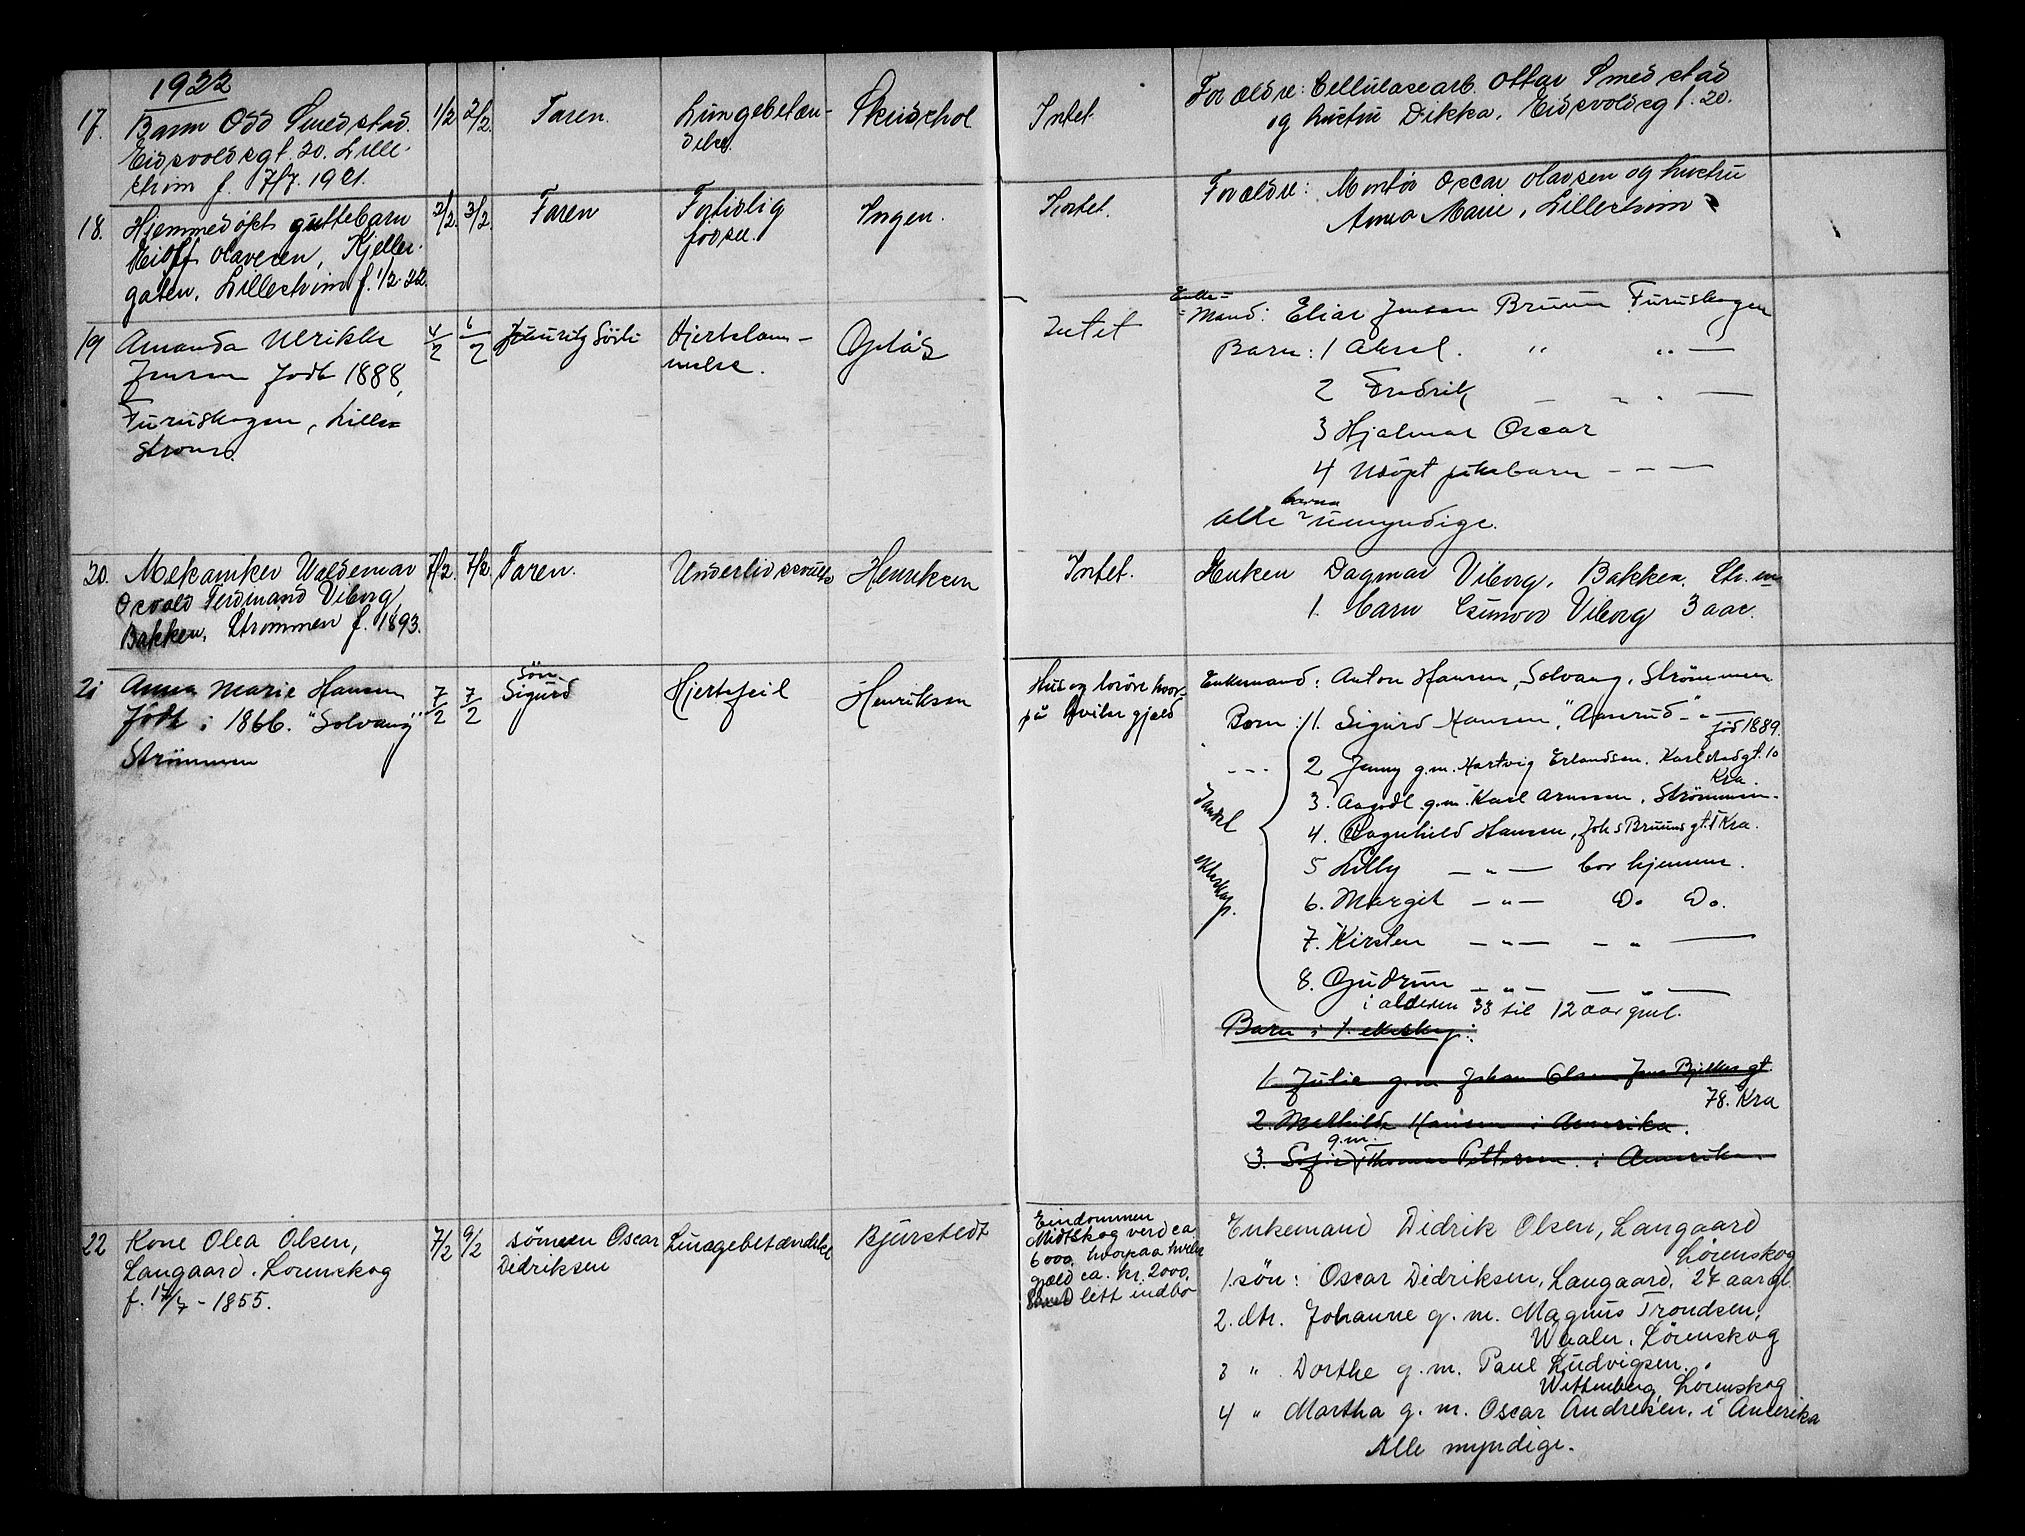 1922
17. Barn Odd Smedstad. 1/2 2/2 Faren. Lungebetæn- Skeidshol Intet. Forældre: Cellulosearb. Ottar Smedstad
Eidsvoldsgt. 20. Lille- delse. og hustru Dikka. Eidsvoldsgt. 20.
strøm f. 7/7. 1921.
18. Hjemmedøpt guttebarn 2/2. 3/2. Faren For tidlig Ingen. Intet. Forældre: Montør Oscar Olavsen og hustru
Olavesen, Kjeller- fødsel. Anna Marie, Lillestrøm
gaten. Lillestrøm f. 1/2. 22.
19 Amanda Ulrikke 4/2 6/2 Hjertelam- Opdås Intet Enke-
Mand: Elias Jensen Bruun Furuskogen
Jensen født 1888, melse. Barn: 1 Aksel. " " —
Furuskogen, Lille= 2 Fredrik — " " —
strøm. 3 Hjalmar Oscar
4 Udøpt pikebarn - - —
barna
Alle umyndige.
20. Mekaniker Valdemar 7/2. 7/2 Faren. Underlivssvulst Henriksen Intet. Enken Dagmar Viborg, Bakken, Str.en
Osvald Ferdinand Viborg 1. barn Gunvor Viborg 3 aar.
Bakken, Strømmen f. 1893.
21 Anna Marie Hansen 7/2 7/2 Søn Sigurd Hjertefeil Henriksen Hus og losøre hvor- Enkemand: Anton Hansen, Solvang, Strømmen
født i 1866. "Solvang" på hviler gjæld Barn: 1. Sigurd Hansen, "Aamrud" - " — fød 1889.
Strømmen 2 Jenny g.m. Hartvig Erlandsen. Karlstadgt. 10
Kra
3. Aagodt g.m. Karl Arnesen, Strømmen.
4. Ragnhild Hansen, Johs Bruuns gt. 1 Kra.
5 Lilly — " — bor hjemme.
ekteskap. 6. Margit — " — Do Do.
7. Kirsten — " — - " —
8. Gudrun — " — — " —
i alderen 33 til 12 aar gml.
Barn i 1. ekteskap:
1. Julie g.m Johan Olsen Jens Bjelkes gt.
78. Kra
2. Mathilde Hansen i Amerika.
g.m.
3. Sofie Thomas Pettersen. i Amerika.
22 Kone Olea Olsen, 7/2 9/2 sønnen Oscar Lungebetændelse Bjurstedt Eiendommen Enkemand Didrik Olsen, Langaard
Langaard. Lørenskog Didriksen Midtskog verd ca. Lørenskog
f. 17/7 - 1855. 6000, hvorpaa hviler 1. søn: Oscar Didriksen, Langaard, 27 aar gl.
gjæld ca. kr. 2000, 2. dtr. Johanne g. m. Magnus Trondsen,
litt indbo Waaler. Lørenskog
3 " Dorthe g. m. Paul Ludvigsen,
Wittenberg, Lørenskog
4 " Martha g. m. Oscar Andresen, i Amerika
Alle myndige.